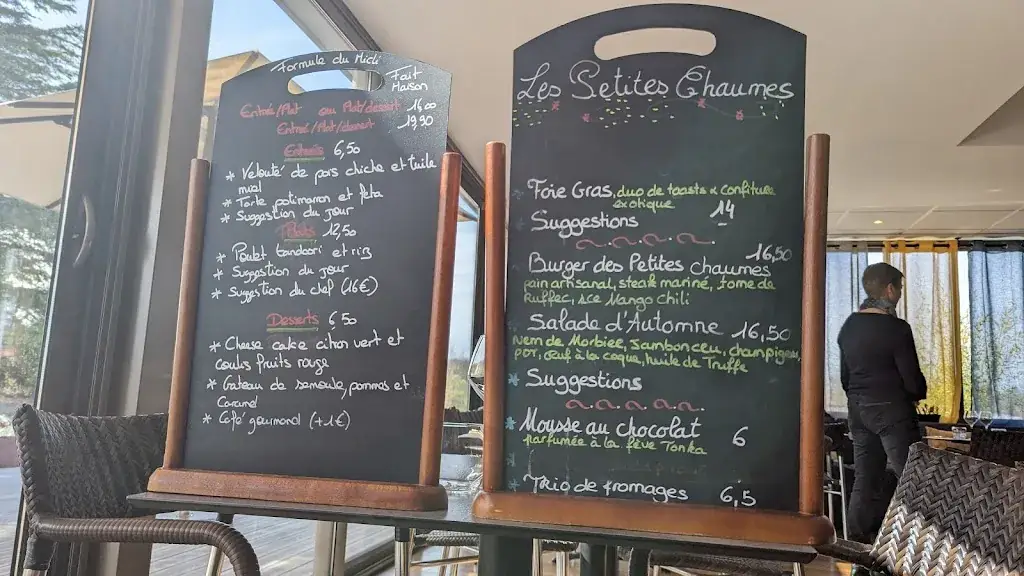 Formule du Midi
Fait
Maison
Entrée/Plat ou Plat/dessert 16,00
Entrée/Plat/dessert 19,90
Entrées 6,50
* Velouté de pois chiche et tuile
miel
* Tarte potimaron et feta
* Suggestion du jour
Plats 12,50
* Poulet tandoori et riz
* Suggestion du jour
* Suggestion du chef (16€)
Desserts 6,50
* Cheese cake citron vert et
coulis fruits rouge
* Gateau de semoule, pommes et
Caramel
* Café gourmand (+1€)
Les Petites Chaumes
Foie Gras, duo de toasts & confiture
exotique 14
Suggestions
Burger des Petites chaumes 16,50
pain artisanal, steak mariné, tome de
Ruffec, sce Mango chili
Salade d'Automne 16,50
Nem de Morbier, Jambon cru, champignon,
POT, œuf à la coque, huile de Truffe
* Suggestions
* Mousse au chocolat 6
parfumée à la fève Tonka
* Trio de fromages 6,5